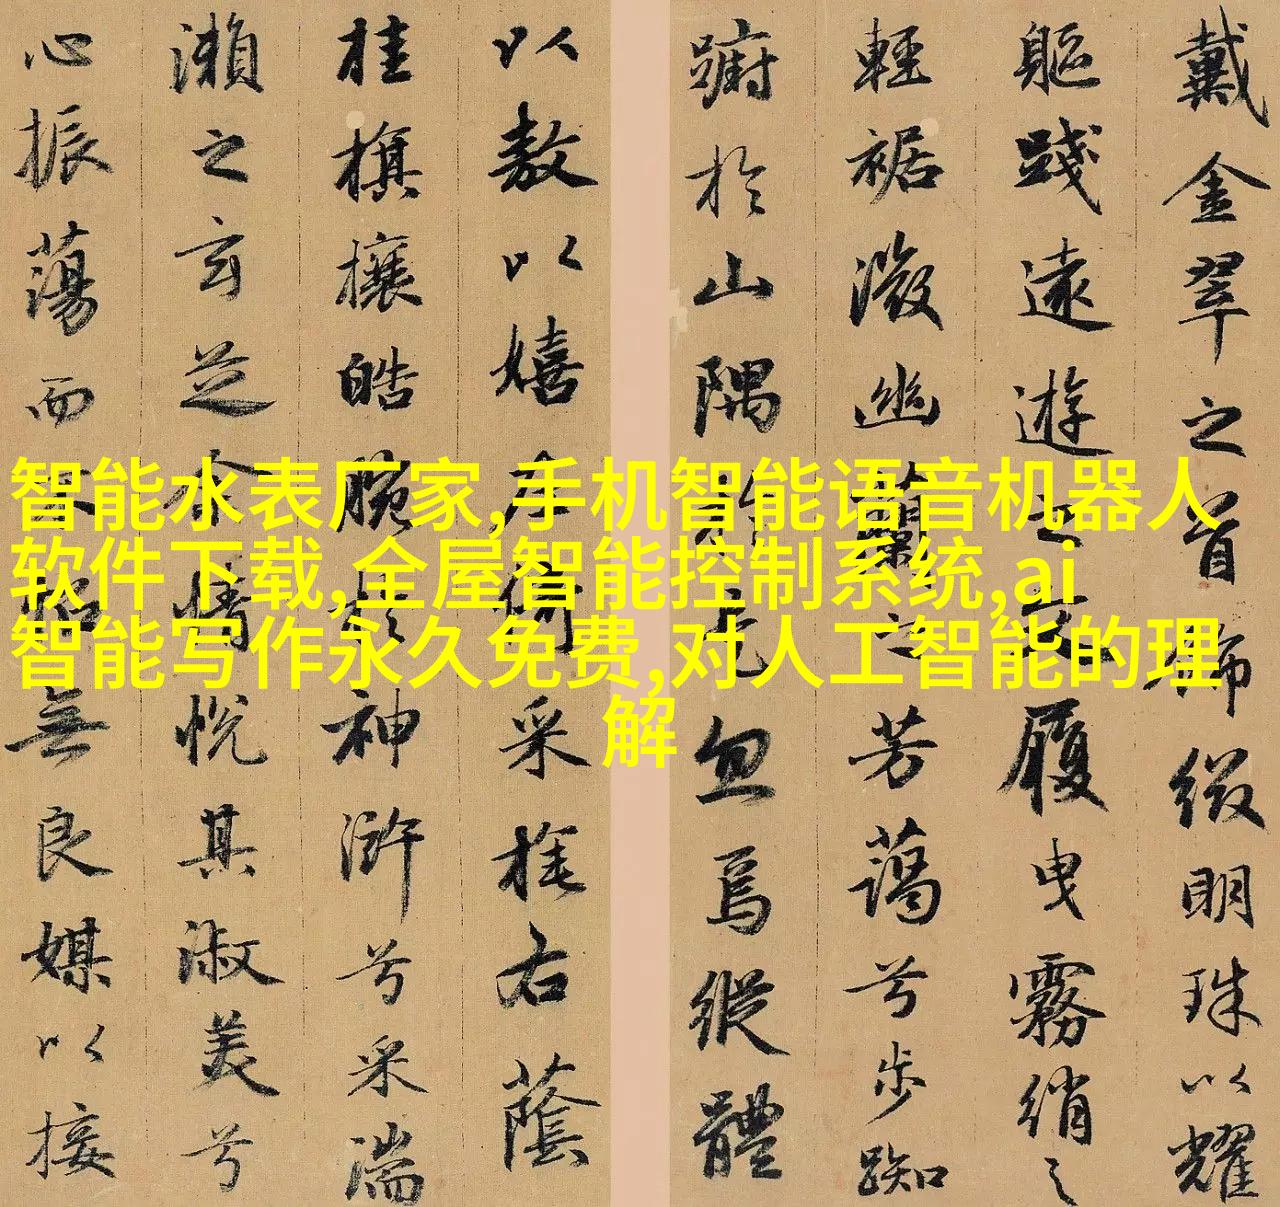 戴金翠之首飾綴明珠以耀
軀踐遠遊之文履曳霧綃之
輕裾微幽蘭之芳藹兮步踟
躕於山隅忽焉縱體
以敖以嬉左倚采旄右蔭
桂旗攘皓腕於神滸兮采湍
瀨之玄芝余情悅其淑美兮
心振蕩而不怡無良媒以接
智能水表厂家,手机智能语音机器人
软件下载,全屋智能控制系统,ai
智能写作永久免费,对人工智能的理
解